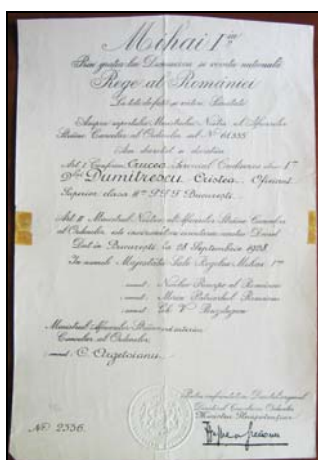 Mihai I
Prin grația lui Dumnezeu și voința națională
Rege al României
La toți de față și viitori, Sănătate
Asupra raportului Ministrului Nostru al Afacerilor
Străine Cancelar al Ordinelor sub Nº 61335
Am decretat și decretăm
Art. I Conferim Crucea Serviciul Credincios clasa I
Dlui Dumitrescu Cristea, Oficiant
Superior clasa II P.T.T. București.
Art. II Ministrul Nostru al Afacerilor Străine Cancelar
al Ordinelor, este însărcinat cu executarea acestui Decret
Dat în București la 28 Septembrie 1928.
În numele Majestății Sale Regelui Mihai I
semnat: Nicolae Principe al României
semnat: Miron Patriarhul României
semnat: Gh. V. Buzdugan
Ministrul Afacerilor Străine
Cancelar al Ordinelor,
semnat: C. Argetoianu.
Pentru conformitatea Decretului original
Directorul Cancelariei Ordinelor
Ministru Plenipotențiar
Nº 2336.